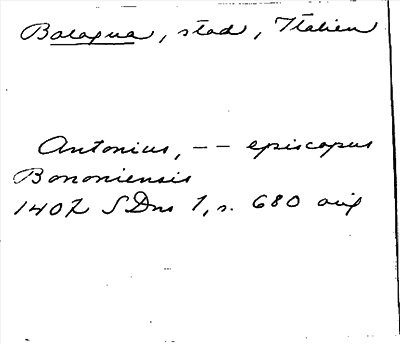 Bologna, stad, Italien
Antonius, -- episcopus
Bononiensis
1407 SDns 1, s. 680 avif